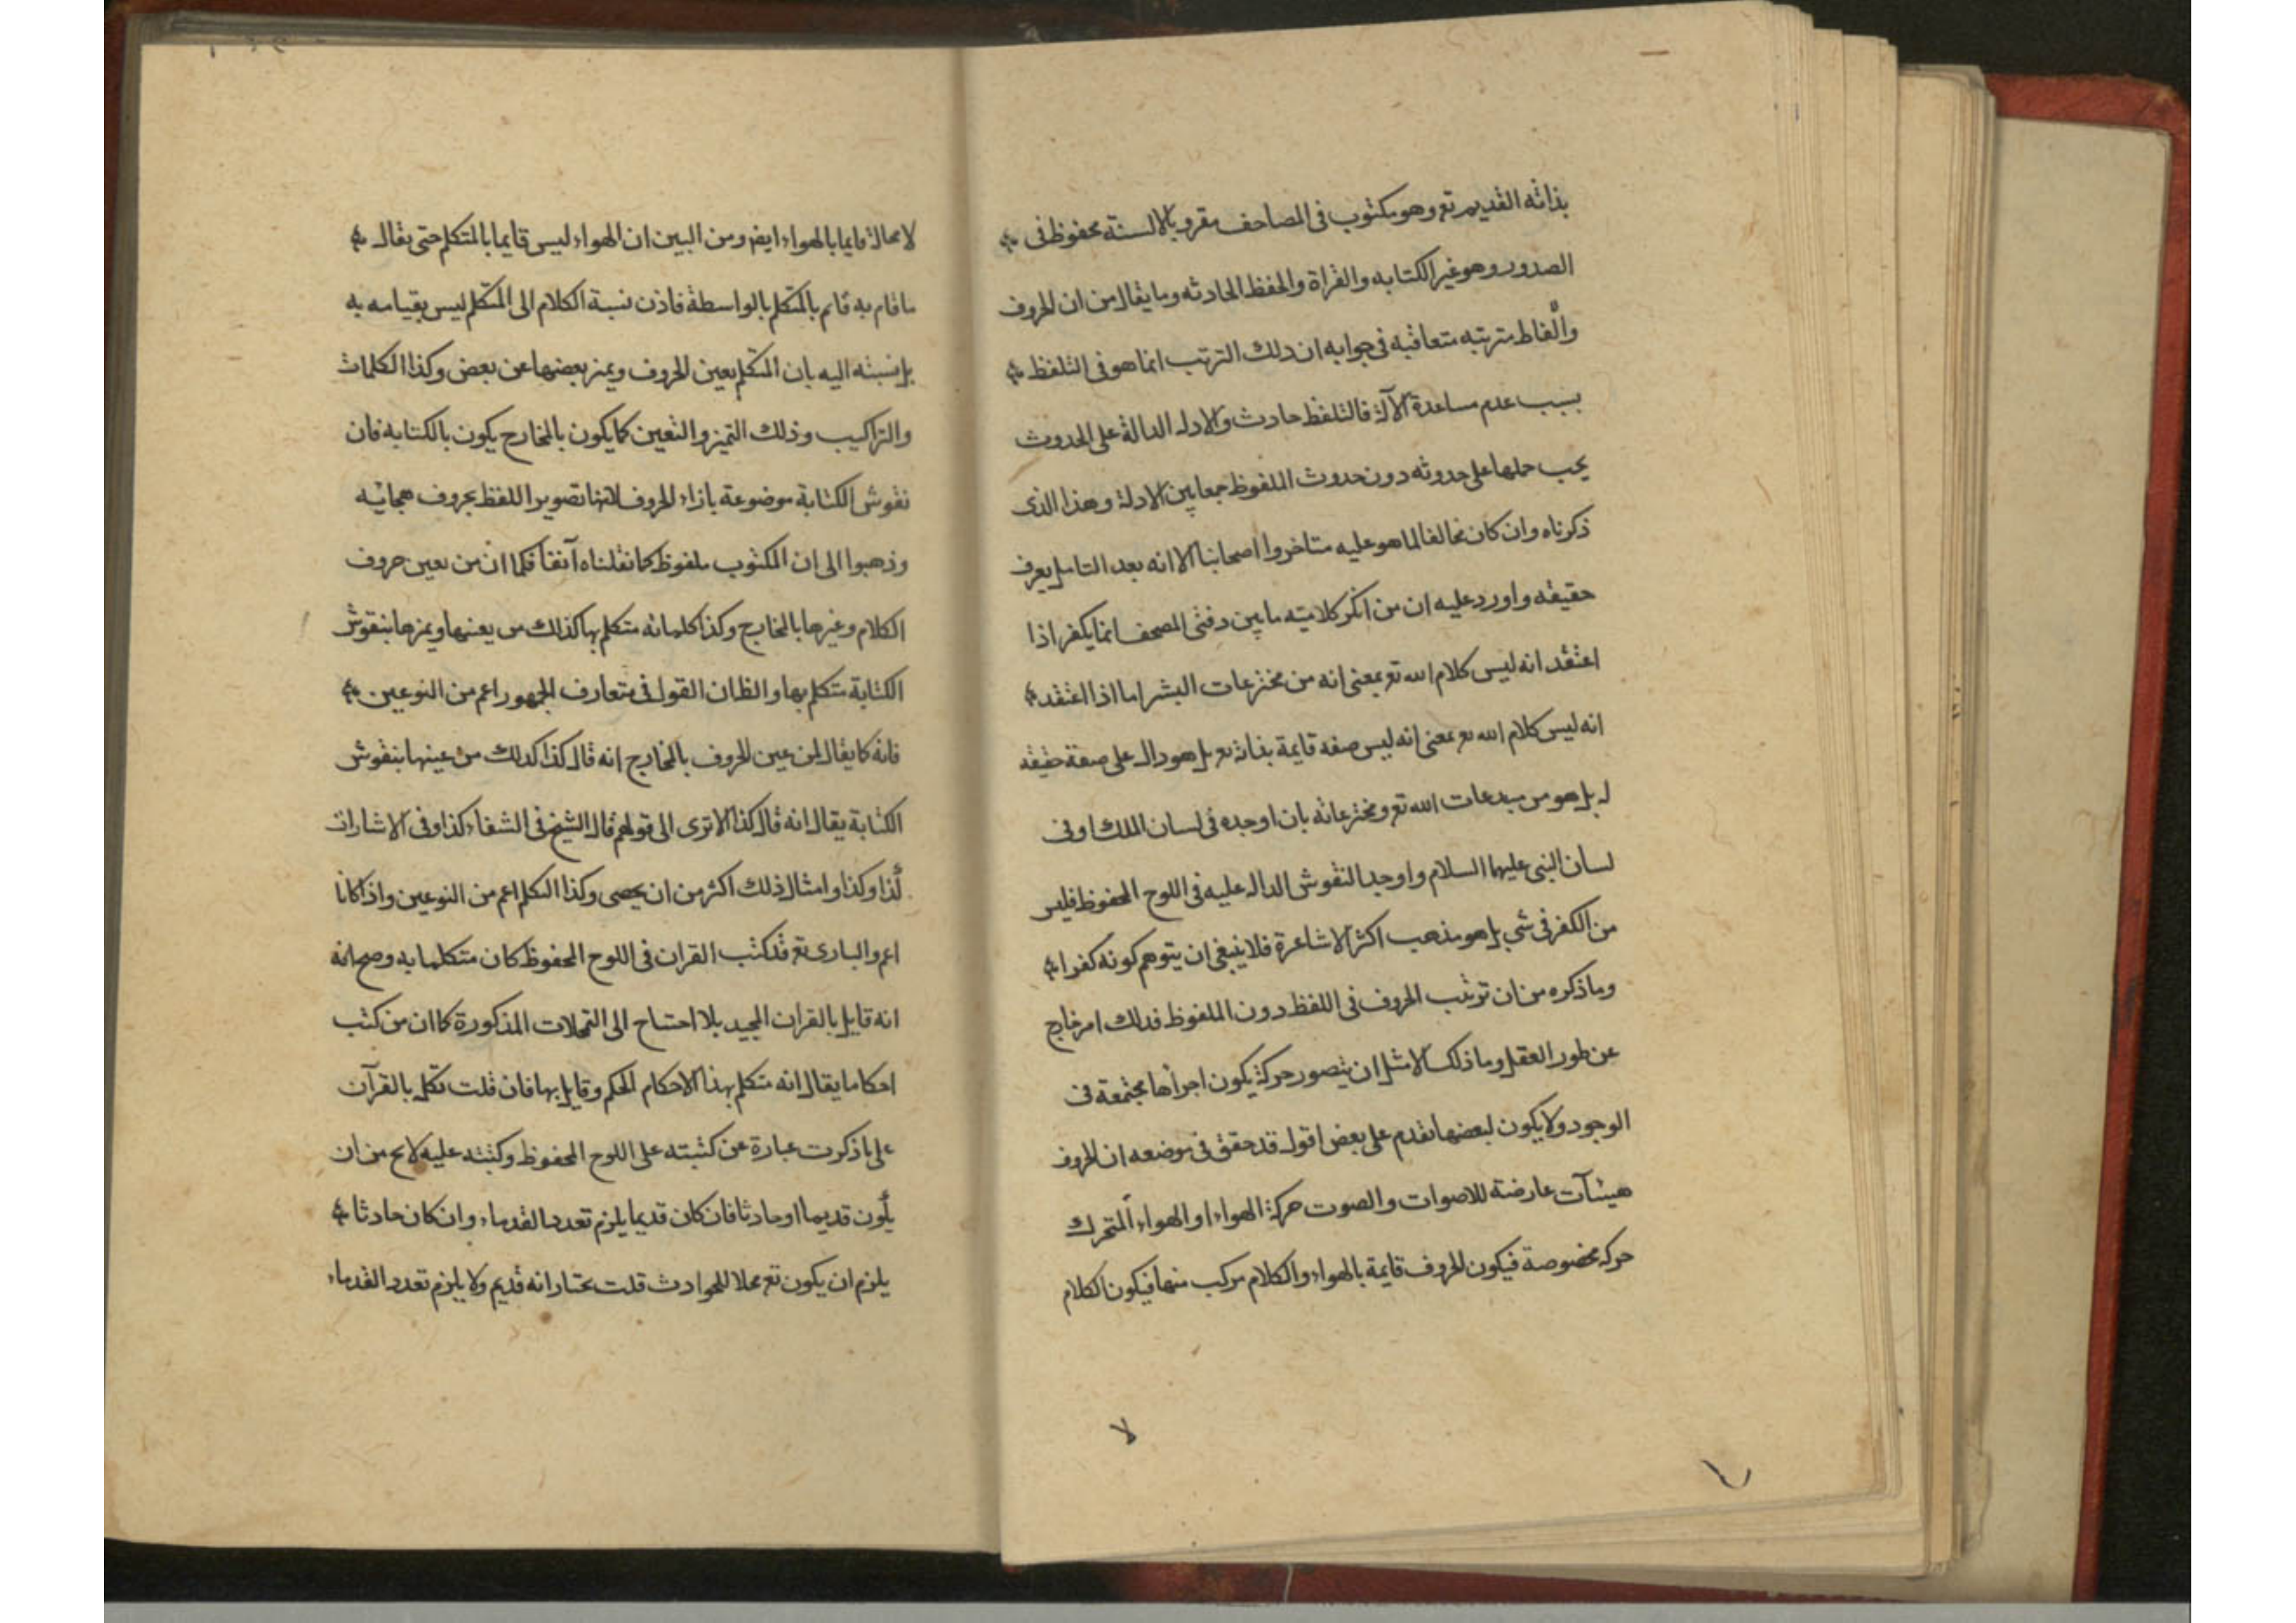 بذاته القديم تع وهو مكتوب فى المصاحف مقرو بالالسنة محفوظ فى
الصدور وهو غير الكتابه والقراة والحفظ الحادثه وما يقال من ان الحروف
والفاظ مترتبه متعاقبه فى جوابه ان ذلك الترتب انما هو فى التلفظ
بسبب عدم مساعدة الآلة فالتلفظ حادث والادله الدالة على الحدوث
يجب حملها على حدوثه دون حدوث الملفوظ جمعا بين الادلة وهذا الذى
ذكرناه وان كان مخالفا لما هو عليه متاخروا اصحابنا الا انه بعد التامل يعرف
حقيقه واورد عليه ان من انكر كلاميته ما بين دفتى المصحف انما يكفر اذا
اعتقد انه ليس كلام الله تع بمعنى انه من مخترعات البشر اما اذا اعتقد
انه ليس كلام الله تع بمعنى انه ليس صفه قايمة بذاته تع بل هو دال على صفة حقيقه
له بل هو من مبدعات الله تع ومخترعاته بان اوجده فى لسان الملك او فى
لسان النبى عليهما السلام واوجد النقوش الداله عليه فى اللوح المحفوظ فليس
من الكفر فى شي بل هو مذهب اكثر الاشاعرة فلا ينبغى ان يتوهم كونه كفرا
وما ذكره من ان ترتب الحروف فى اللفظ دون الملفوظ فذلك امر خارج
عن طور العقل وما ذلك الا مثل ان يتصور حركة يكون اجزاها مجتمعة فى
الوجود ولا يكون لبعضها تقدم على بعض اقول قد حقق فى موضعه ان الحروف
هيئآت عارضة للاصوات والصوت حركة الهواء او الهواء المتحرك
حركه مخصوصة فيكون الحروف قايمة بالهواء والكلام مركب منها فيكون الكلام
لا
لا محالة قايما بالهواء ايض ومن البين ان الهواء ليس قايما بالمتكلم حتى يقال
ما قام به قام بالمتكلم بالواسطة فاذن نسبة الكلام الى المتكلم ليس بقيامه به
بل نسبته اليه بان المتكلم يعين الحروف ويميز بعضها عن بعض وكذا الكلمات
والتراكيب وذلك التميز والتعين كما يكون بالمخارج يكون بالكتابه فان
نقوش الكتابة موضوعة بازاء الحروف لانها تصوير اللفظ بحروف هجائيه
وذهبوا الى ان المكتوب ملفوظ كما نقلناه آنفا فكما ان من تعين حروف
الكلام وغيرها بالمخارج وكذا كلماته متكلم بها كذلك من يعينها ويميزها بنقوش
الكتابة متكلم بها والظ ان القول فى متعارف الجمهور اعم من النوعين
فانه كما يقال لمن عين الحروف بالمخارج انه قال كذا كذلك من عينها بنقوش
الكتابة يقال انه قال كذا الا ترى الى قولهم قال الشيخ فى الشفاء كذا وفى الاشارات
كذا وكذا وامثال ذلك اكثر من ان يحصى وكذا التكلم اعم من النوعين واذا كانا
اعم والبارى تع قد كتب القران فى اللوح المحفوظ كان متكلما به وصح انه
انه قايل بالقران المجيد بلا احتياج الى التمحلات المذكورة كما ان من كتب
احكاما يقال انه متكلم بهذا الاحكام الحكم وقايل بها فان قلت تكلم بالقرآن
على ما ذكرت عبارة عن كتبته على اللوح المحفوظ وكتبته عليه لا يخ من ان
يكون قديما او حادثا فان كان قديما يلزم تعدد القدماء وان كان حادثا
يلزم ان يكون تع محلا للحوادث قلت نختار انه قديم ولا يلزم تعدد القدماء